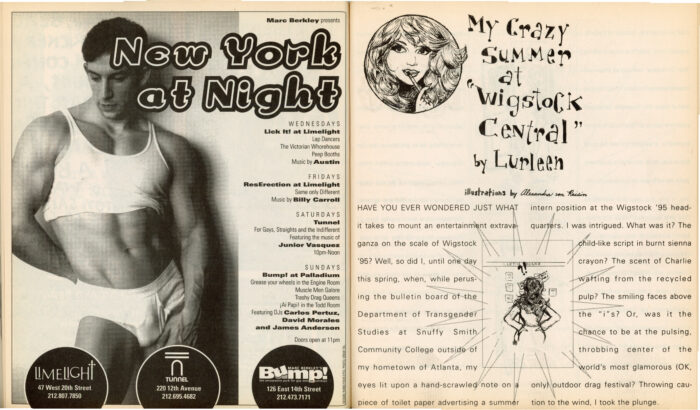 Marc Berkley presents
New York
at Night
WEDNESDAYS
Lick It! at Limelight
Lap Dancers
The Victorian Whorehouse
Peep Booths
Music by Austin
FRIDAYS
ResErection at Limelight
Same only Different
Music by Billy Carroll
SATURDAYS
Tunnel
For Gays, Straights and the Indifferent
Featuring the music of
Junior Vasquez
10pm-Noon
SUNDAYS
Bump! at Palladium
Grease your wheels in the Engine Room
Muscle Men Galore
Trashy Drag Queens
¡Ai Papi! in the Todd Room
Featuring DJs Carlos Pertuz,
David Morales
and James Anderson
Doors open at 11pm
LIMELIGHT
47 West 20th Street
212.807.7850
TUNNEL
220 12th Avenue
212.695.4682
MARC BERKLEY'S
Bump!
126 East 14th Street
212.473.7171
My Crazy
Summer
at
"Wigstock
Central"
by Lurleen
illustrations by
HAVE YOU EVER WONDERED JUST WHAT
it takes to mount an entertainment extrava-
ganza on the scale of Wigstock
'95? Well, so did I, until one day
this spring, when, while perus-
ing the bulletin board of the
Department of Transgender
Studies at Snuffy Smith
Community College outside of
my hometown of Atlanta, my
eyes lit upon a hand-scrawled note on a
piece of toilet paper advertising a summer
intern position at the Wigstock '95 head-
quarters. I was intrigued. What was it? The
child-like script in burnt sienna
crayon? The scent of Charlie
wafting from the recycled
pulp? The smiling faces above
the "i"s? Or, was it the
chance to be at the pulsing,
throbbing center of the
world's most glamorous (OK,
only) outdoor drag festival? Throwing cau-
tion to the wind, I took the plunge.